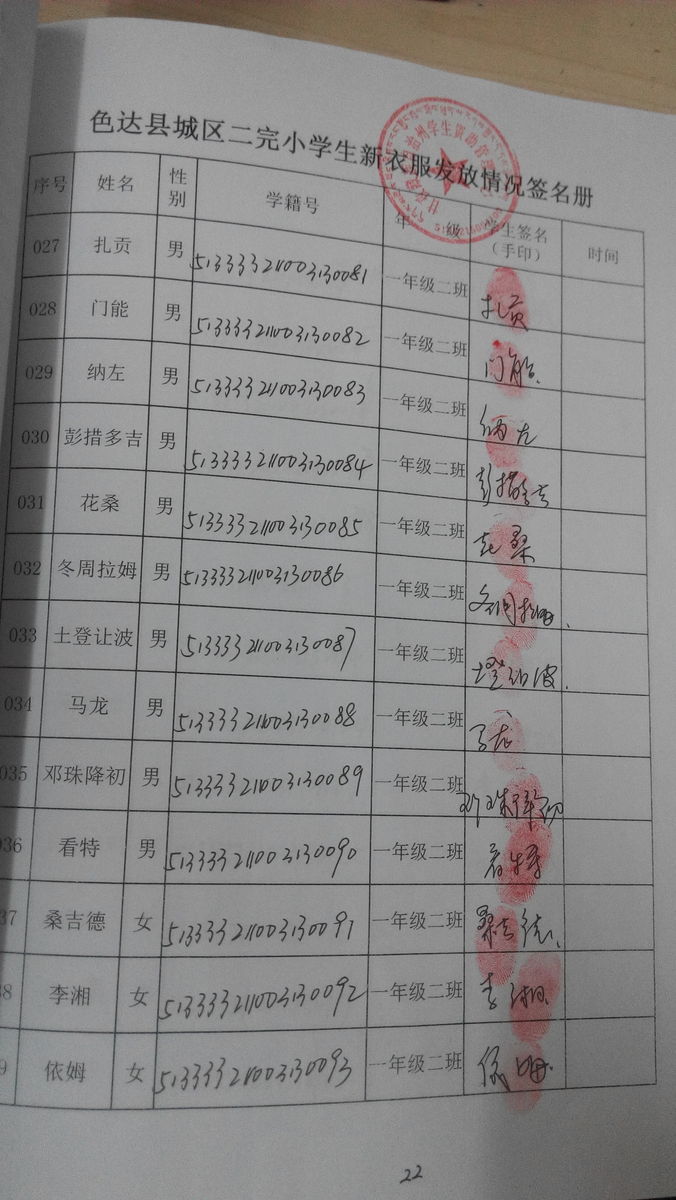 色达县城区二完小学生新衣服发放情况签名册
序号 姓名 性别 学籍号 年 级 学生签名（手印） 时间
027 扎贡 男 513333211003130081 一年级二班 扎贡
028 门能 男 513333211003130082 一年级二班 门能
029 纳左 男 513333211003130083 一年级二班 纳左
030 彭措多吉 男 513333211003130084 一年级二班 彭措多吉
031 花桑 男 513333211003130085 一年级二班 花桑
032 冬周拉姆 男 513333211003130086 一年级二班 冬周拉姆
033 土登让波 男 513333211003130087 一年级二班 土登让波
034 马龙 男 513333211003130088 一年级二班 马龙
035 邓珠降初 男 513333211003130089 一年级二班 邓珠降初
36 看特 男 513333211003130090 一年级二班 看特
37 桑吉德 女 513333211003130091 一年级二班 桑吉德
38 李湘 女 513333211003130092 一年级二班 李湘
9 依姆 女 513333211003130093 一年级二班 依姆
22